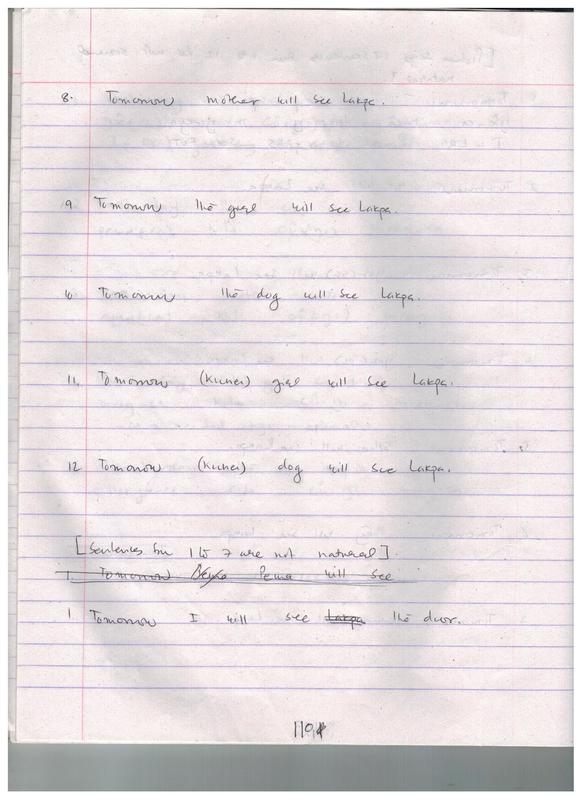 8. Tomorrow mother will see Lakpa.
9. Tomorrow the girl will see Lakpa.
10. Tomorrow the dog will see Lakpa.
11. Tomorrow (Kuchei) girl will see Lakpa.
12 Tomorrow (Kuchei) dog will see Lakpa.
[Sentences for 1 to 7 are not natural].
1. Tomorrow Pema will see
1 Tomorrow I will see Lakpa the door.